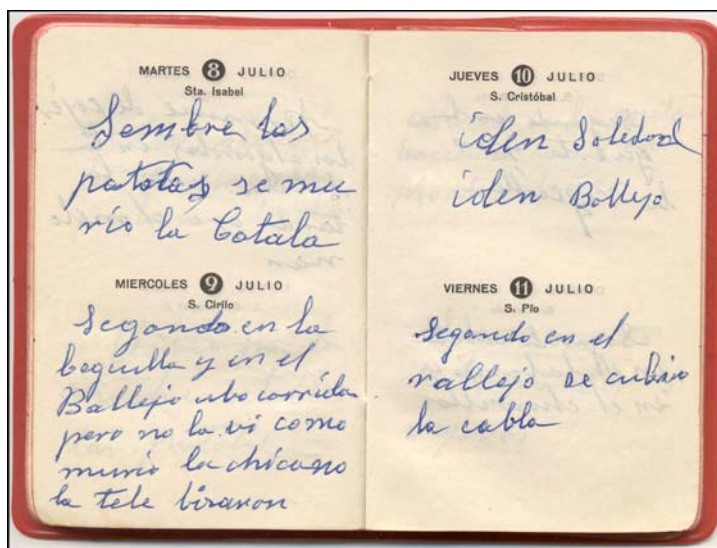 MARTES 8 JULIO
Sta. Isabel
Sembre las
patatas se mu
rio la Catala
MIERCOLES 9 JULIO
S. Cirilo
Segando en la
beguilla y en el
Ballejo ubo corrida
pero no la vi como
murio la chica no
la tele bisaron
JUEVES 10 JULIO
S. Cristóbal
iden Soledad
iden Ballejo
VIERNES 11 JULIO
S. Pío
Segando en el
vallejo se cubrio
la cabla